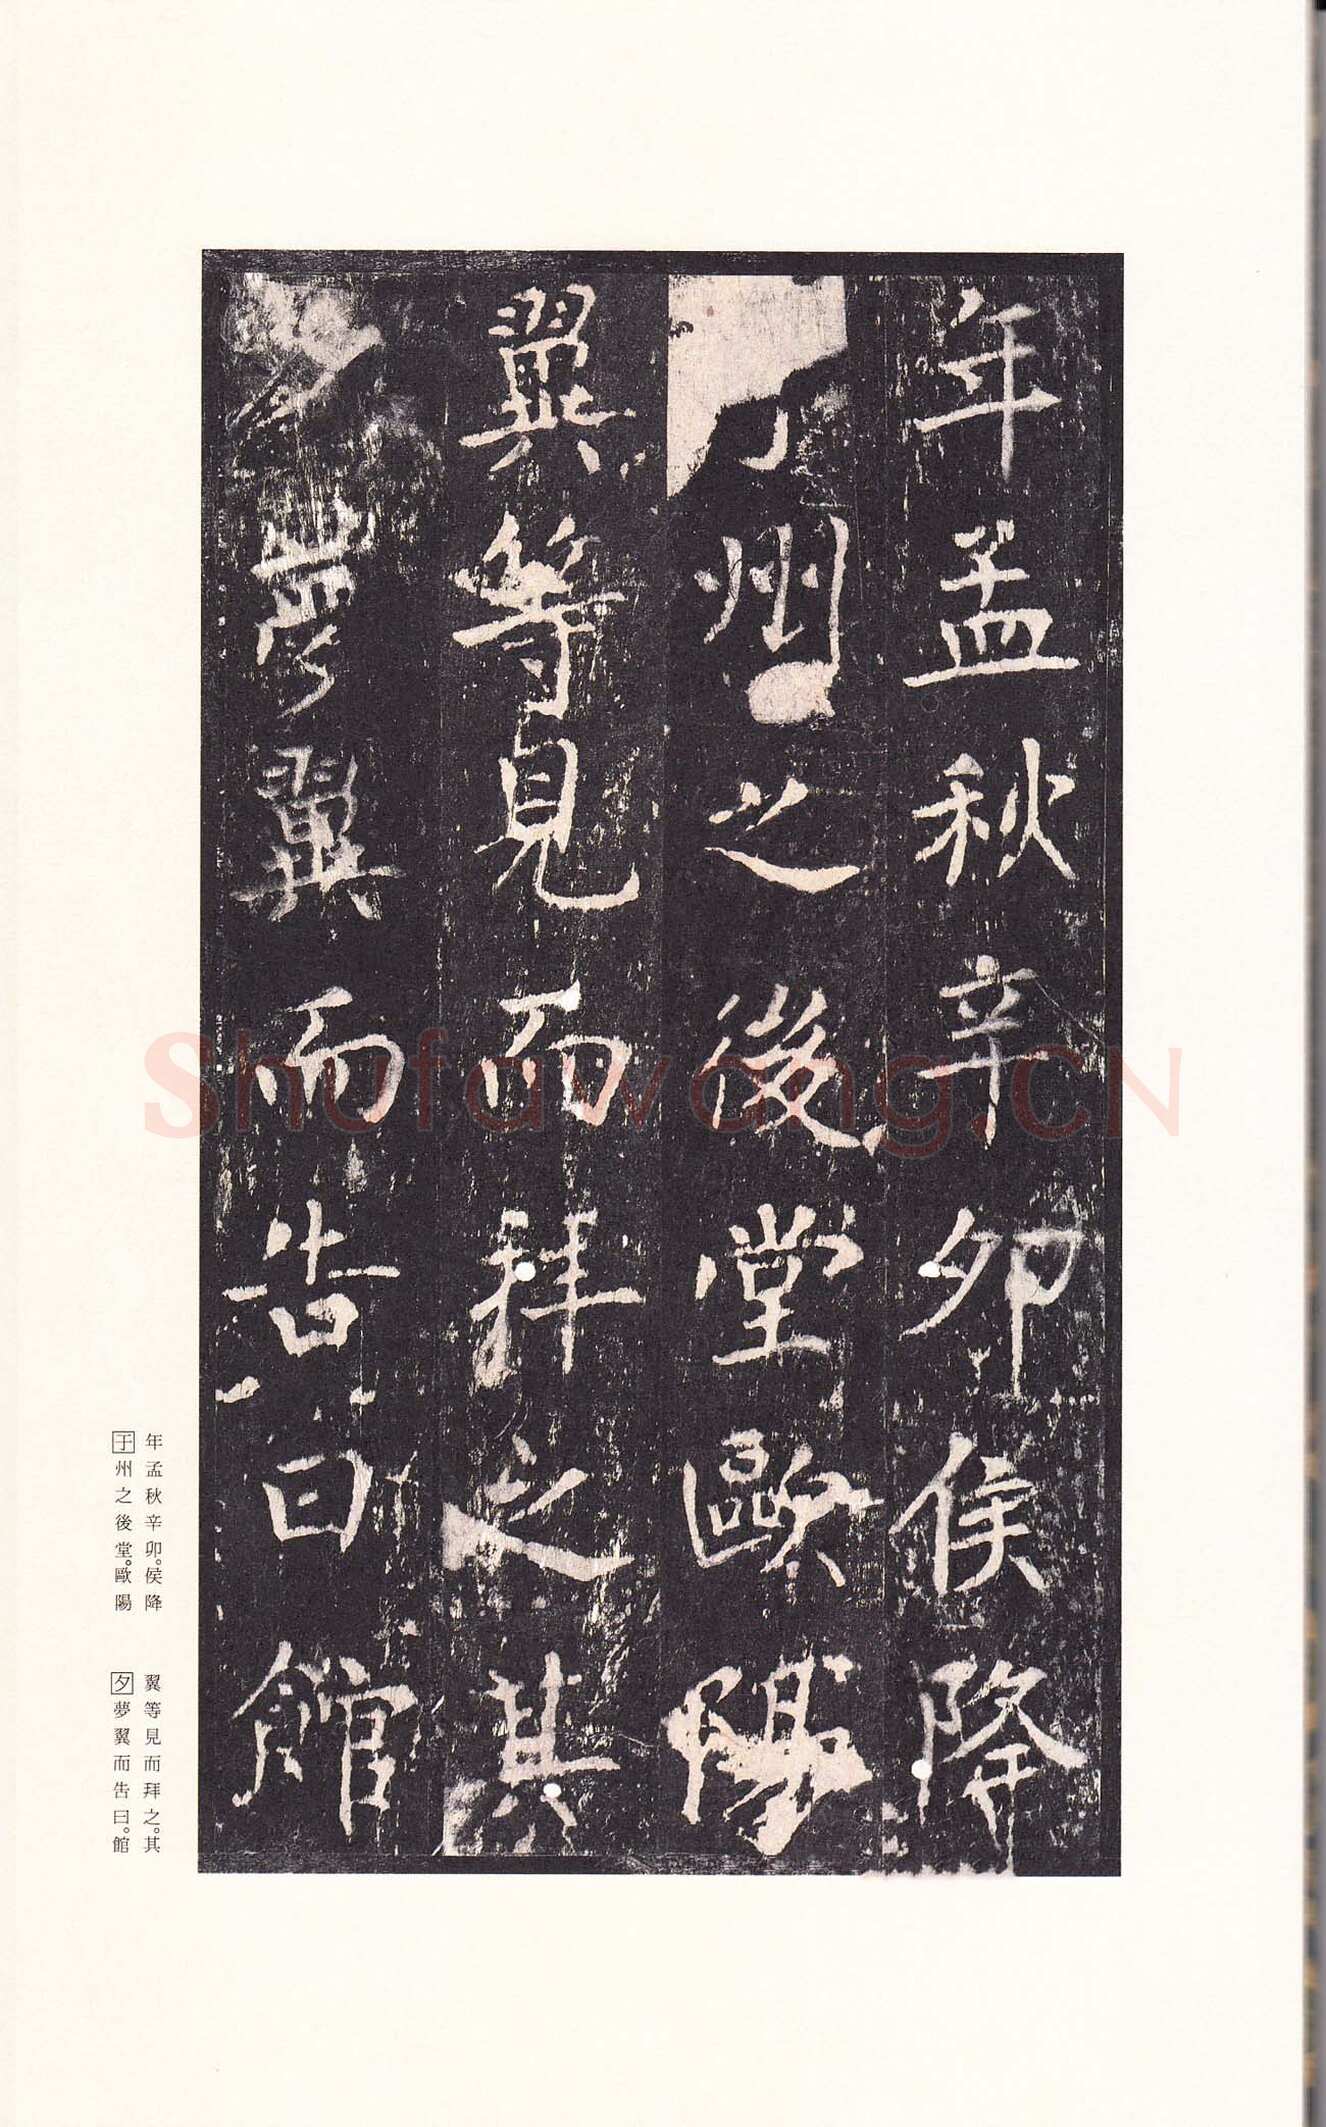 年孟秋辛卯侯降
于州之後堂歐陽
翼等見而拜之其
夕夢翼而告曰館
年孟秋辛卯。侯降
于州之後堂。歐陽
翼等見而拜之。其
夕夢翼而告曰。館
Shufawang.CN